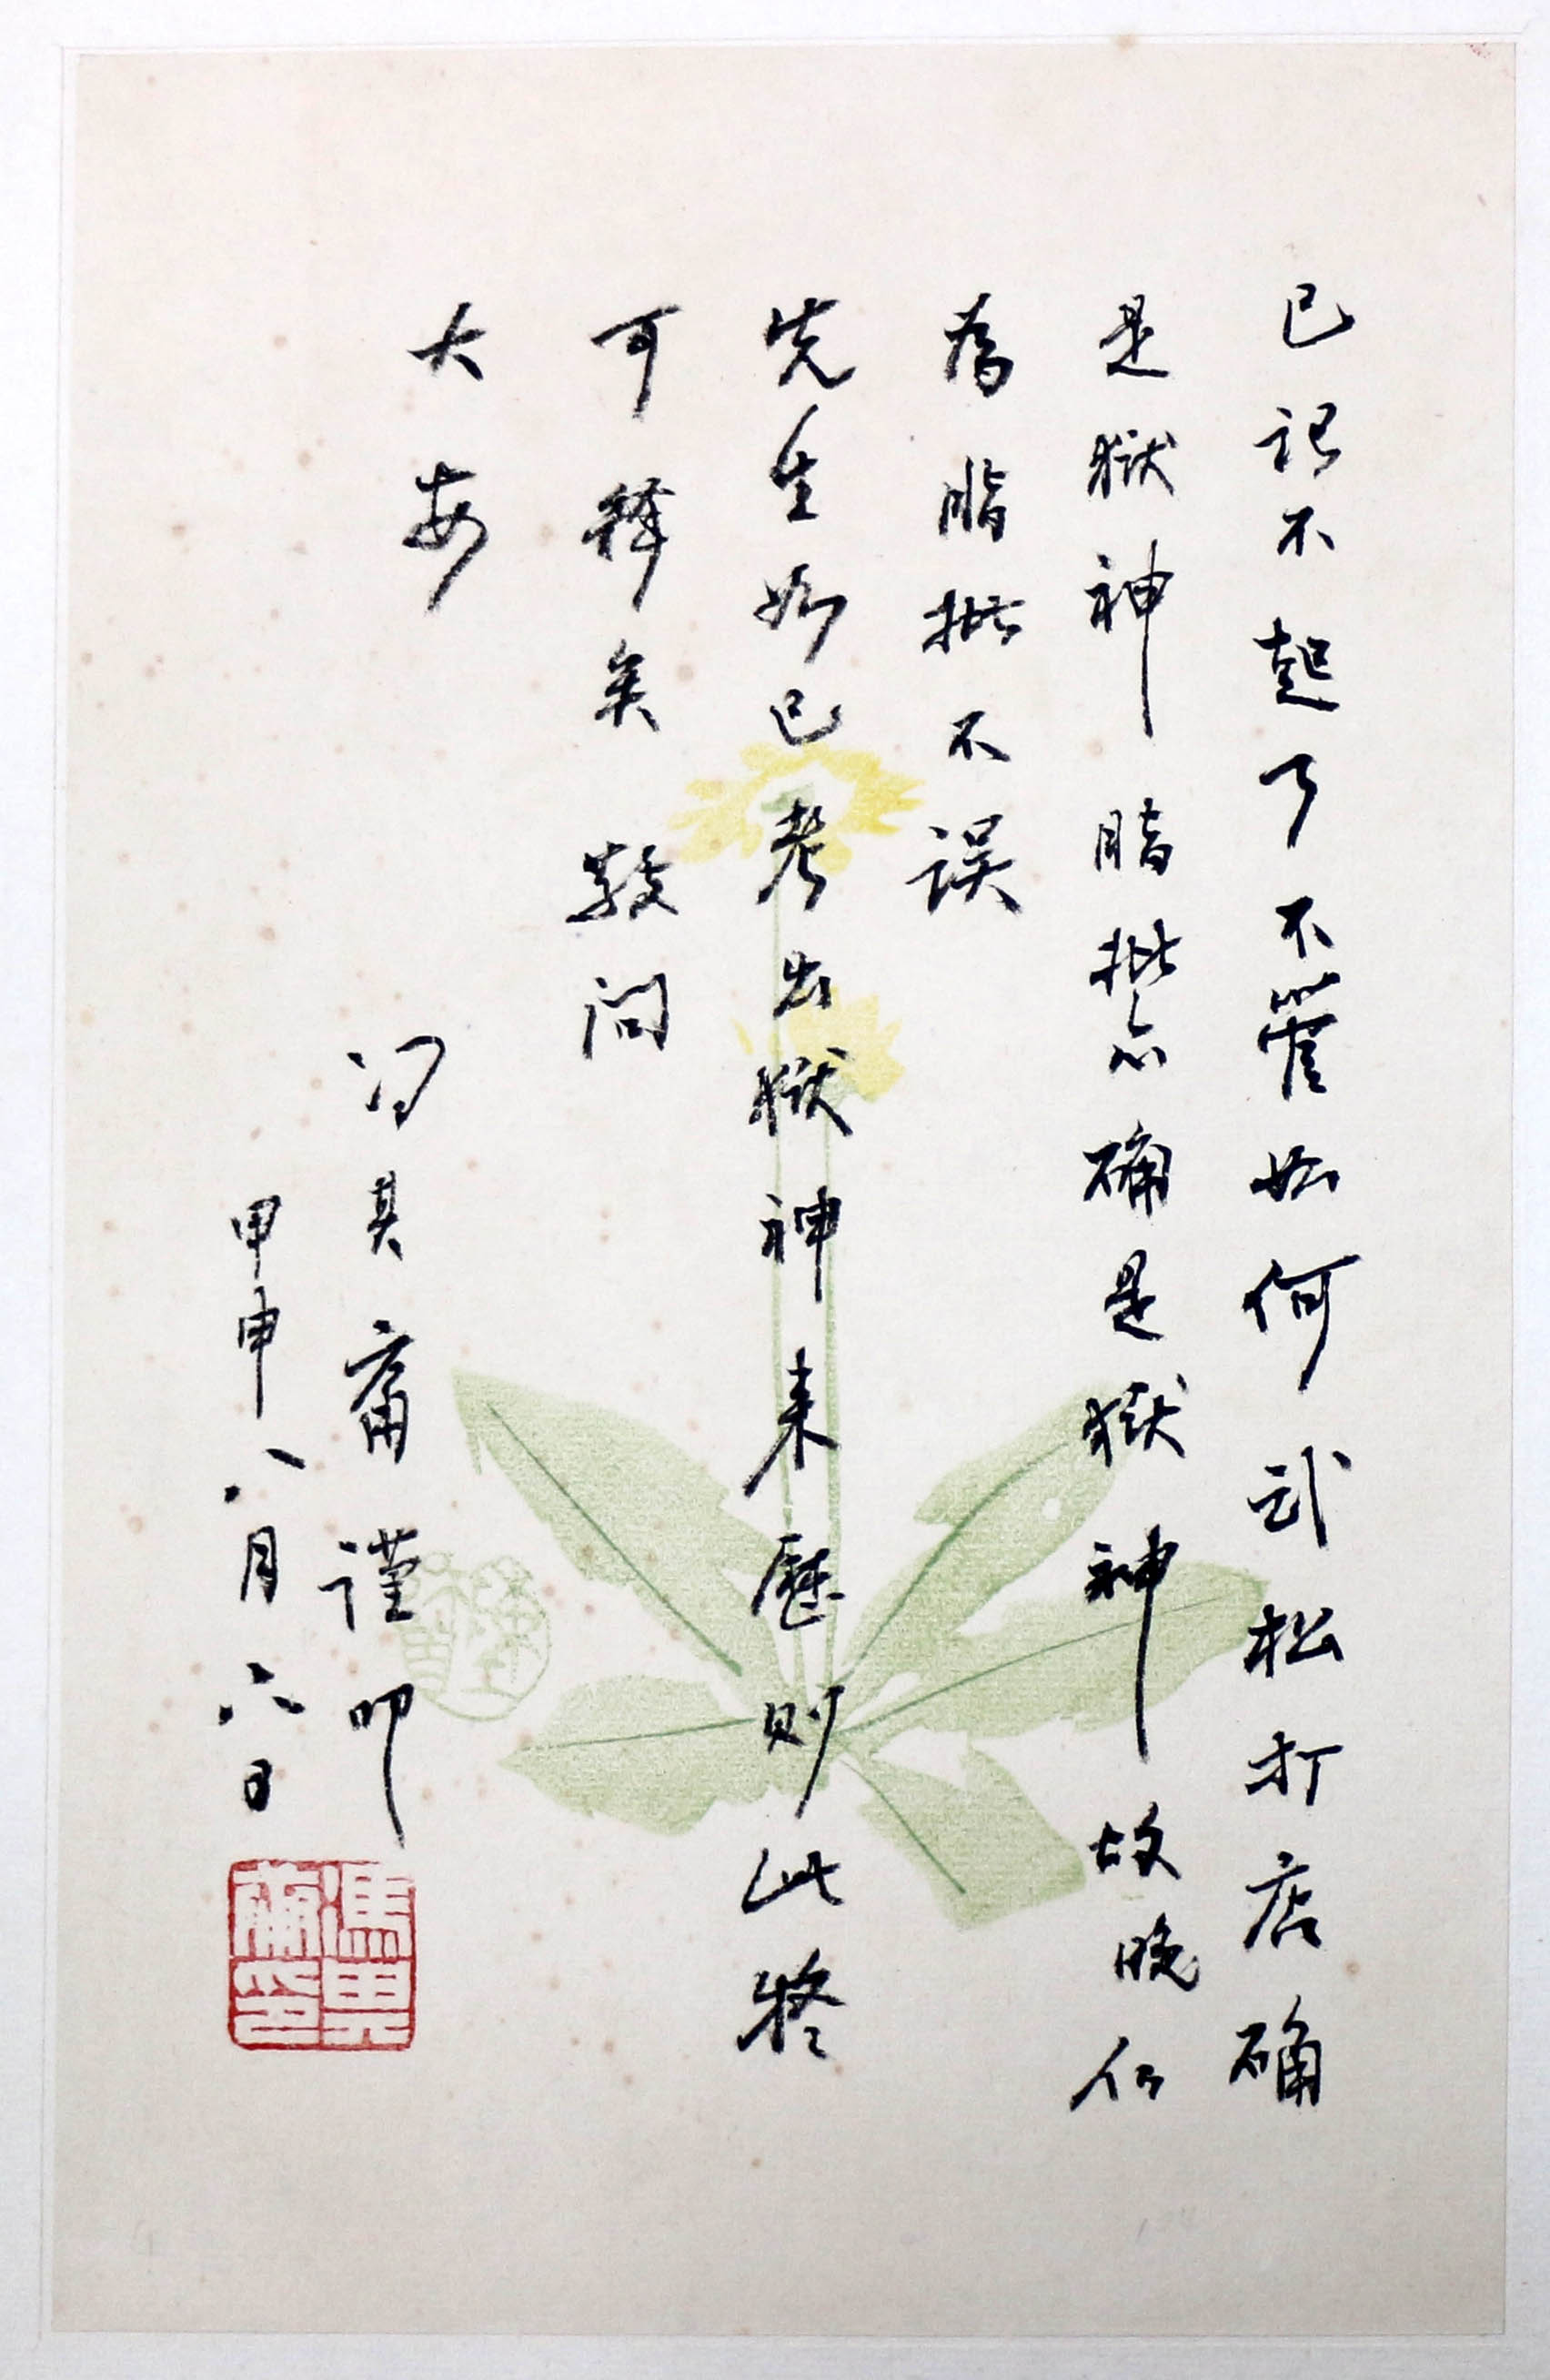 已记不起了不管如何武松打店确
是狱神脂批亦确是狱神故晚仍
为脂批不误
先生如已考出狱神来历则此疑
可释矣敬问
大安
冯其庸谨叩
甲申八月六日
馮其庸印